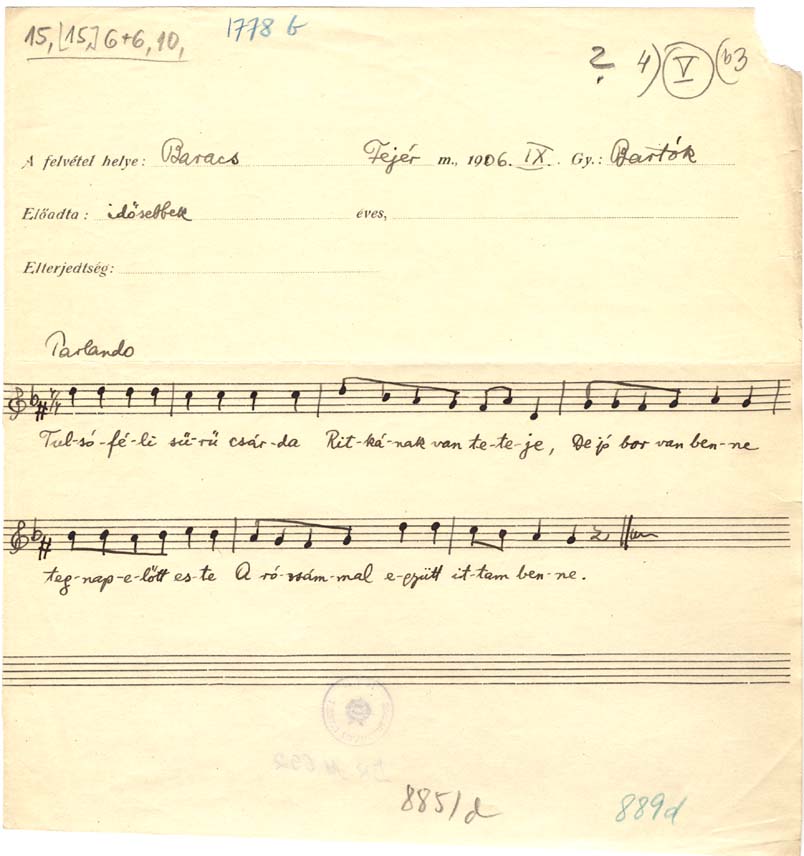 15, [15,] 6+6, 10,
1778 b
? 4) V (b3
A felvétel helye: Baracs Fejér m., 1906. IX. Gy.: Bartók
Előadta: idősebbek éves,
Elterjedtség:
Parlando
Tul-só-fé-li sű-rű csár-da Rit-ká-nak van te-te-je, De jó bor van ben-ne
teg-nap-e-lőtt es-te A ró-zsám-mal e-gyütt it-tam ben-ne.
885/d
889d